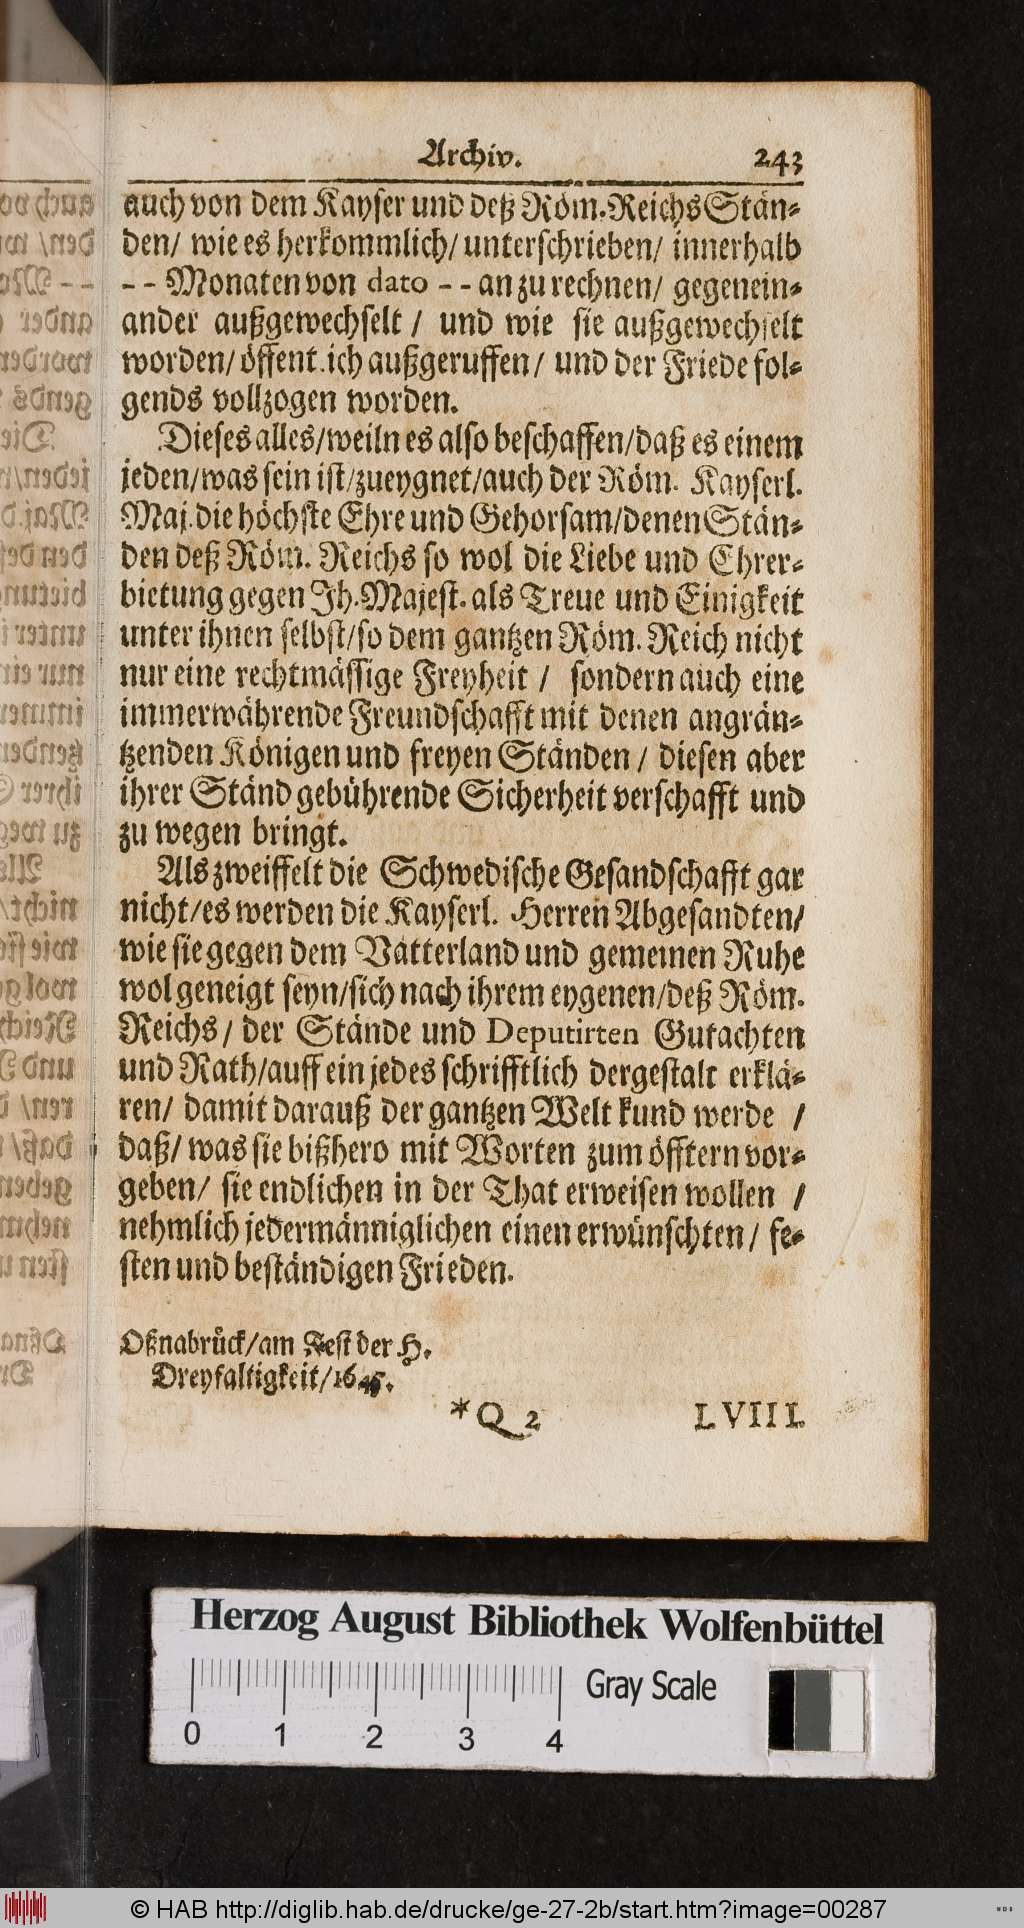 Archiv. 243
auch von dem Kayser und deß Röm. Reichs Stän-
den/ wie es herkommlich/ unterschrieben/ innerhalb
-- Monaten von dato -- an zu rechnen/ gegenein-
ander außgewechselt / und wie sie außgewechselt
worden/ öffent.ich außgeruffen/ und der Friede fol-
gends vollzogen worden.
Dieses alles/weiln es also beschaffen/daß es einem
jeden/was sein ist/zueygnet/auch der Röm. Kayserl.
Maj. die höchste Ehre und Gehorsam/denen Stän-
den deß Röm. Reichs so wol die Liebe und Ehrer-
bietung gegen Jh. Majest. als Treue und Einigkeit
unter ihnen selbst/so dem gantzen Röm. Reich nicht
nur eine rechtmässige Freyheit / sondern auch eine
immerwährende Freundschafft mit denen angrän-
tzenden Königen und freyen Ständen / diesen aber
ihrer Ständ gebührende Sicherheit verschafft und
zu wegen bringt.
Als zweiffelt die Schwedische Gesandschafft gar
nicht/es werden die Kayserl. Herren Abgesandten/
wie sie gegen dem Vatterland und gemeinen Ruhe
wol geneigt seyn/sich nach ihrem eygenen/deß Röm.
Reichs/ der Stände und Deputirten Gutachten
und Rath/auff ein jedes schrifftlich dergestalt erklä-
ren/ damit darauß der gantzen Welt kund werde /
daß/ was sie bißhero mit Worten zum öfftern vor-
geben/ sie endlichen in der That erweisen wollen /
nehmlich jedermänniglichen einen erwünschten/ fe-
sten und beständigen Frieden.
Oßnabrück/am Fest der H.
Dreyfaltigkeit/1645.
*Q 2 LVIII.
Herzog August Bibliothek Wolfenbüttel
0 1 2 3 4 Gray Scale
© HAB http://diglib.hab.de/drucke/ge-27-2b/start.htm?image=00287